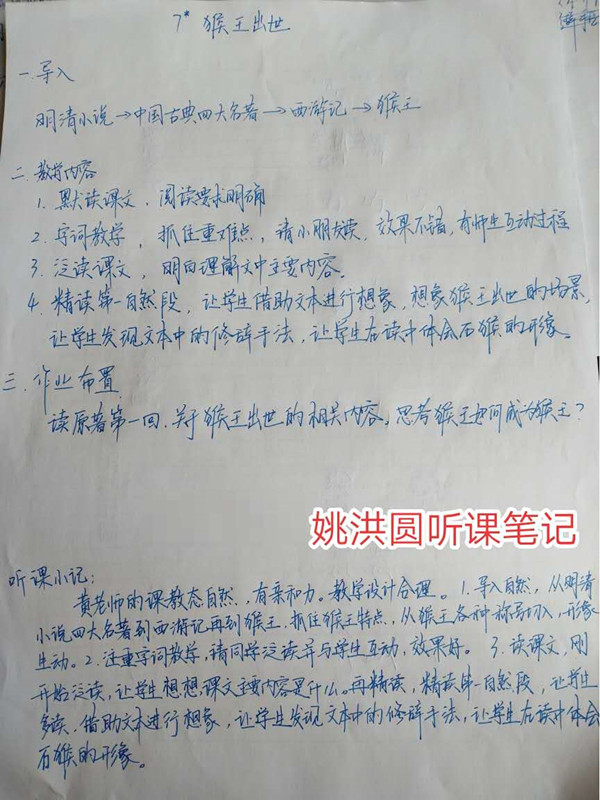 7* 猴王出世
一.导入
明清小说→中国古典四大名著→西游记→猴王
二.教学内容
1. 默读课文，阅读要求明确
2. 字词教学，抓住重难点，请小朋友读，效果不错，有师生互动过程
3. 泛读课文，明白理解文中主要内容。
4. 精读第一自然段，让学生借助文本进行想象，想象猴王出世的场景，
让学生发现文本中的修辞手法，让学生在读中体会石猴的形像。
三.作业布置
读原著第一回，关于猴王出世的相关内容，思考猴王如何成为猴王？
姚洪圆听课笔记
听课小记：
黄老师的课教态自然，有亲和力。教学设计合理。1.导入自然，从明清
小说四大名著到西游记再到猴王，抓住猴王特点，从猴王各种称号切入，形象
生动。2.注重字词教学，请同学泛读并与学生互动，效果好。3.读课文，刚
开始泛读，让学生想想课文主要内容是什么。再精读，精读第一自然段，让学生
多读，借助文本进行想象，让学生发现文本中的修辞手法，让学生在读中体会
石猴的形像。